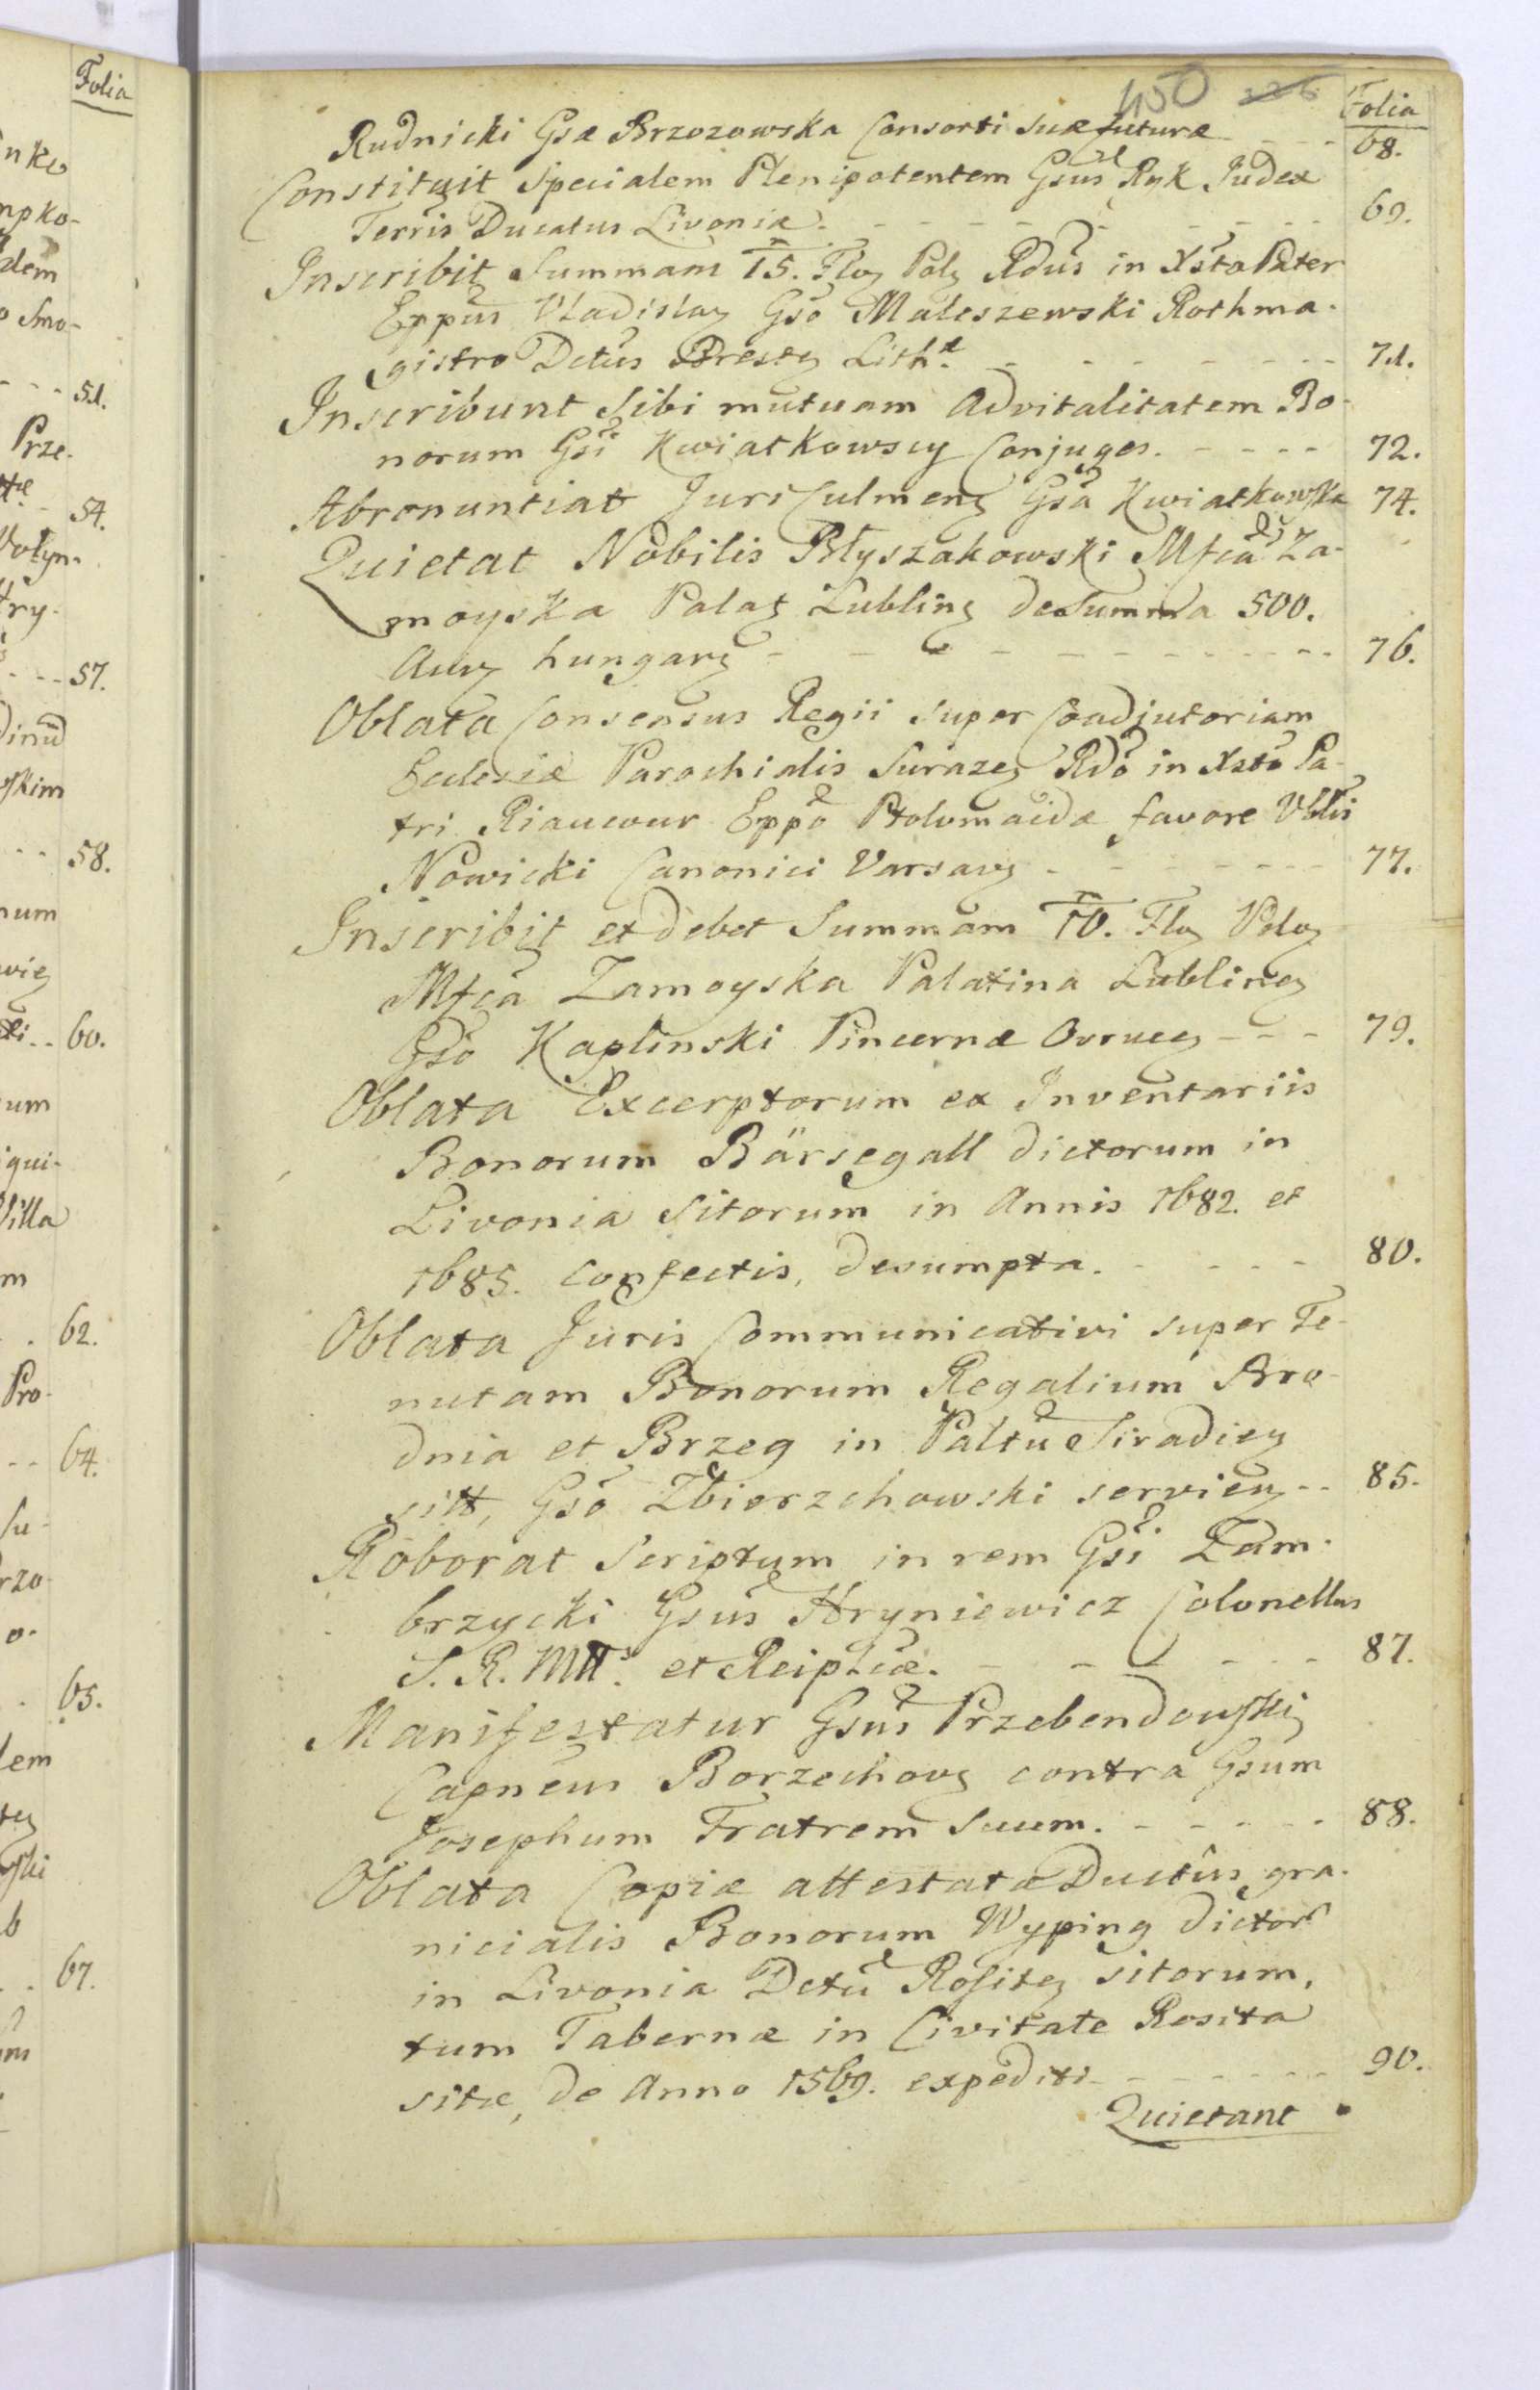 Folia
nko
npko-
dem
o Smo-
- - - 51.
Prze-
54.
Wołyn-
try-
- - - 57.
skim
- - 58.
num
wien
ki - - 60.
um
iqui-
Villa
m
- . 62.
Pro-
- - 64.
Su-
rzo-
o-
. 65.
lem
ski
b
. . 67.
m
450 226
Folia
Rudnicki Gsæ Brzozowska Consorti suæ futuræ - - - 68.
Constituit Specialem Plenipotentem Gsus Ryk Judex
Terris Ducatus Livoniæ. - - - - - - - 69.
Inscribit Summam 15. Flor Pol Rdus in Xsto Pater
Eppus Vladislav Gso Maleszewski Rothma-
gistro Dctus Brestens Lith. - - - - - - - 71.
Inscribunt Sibi mutuam Advitalitatem Bo-
norum Gsi Kwiatkowscy Conjuges. - - - - 72.
Abronuntiat Juri Culmens Gsa Kwiatkowska 74.
Quietat Nobilis Błyszakowski Mfca Za-
moyska Palat Lublins de Summa 500.
Aur hungar - - - - - - - - - 76.
Oblata Consensus Regii super Coadjutoriam
Eccleziæ Parochialis Surazens Rdo in Xsto Pa-
tri Riaucour Eppo Ptolomaidæ favore Vblis
Nowicki Canonici Varsav - - - - - - - 77.
Inscribit et debet Summam 10. Flor Polon
Mfca Zamoyska Palatina Lublinen
Gso Kaplinski Pincernæ Ovrucens - - - 79.
Oblata Excerptorum ex Inventariis
Bonorum Bärsegall dictorum in
Livonia Sitorum in Annis 1682. et
1685. confectis, desumpta. - - - - - 80.
Oblata Juris Communicativi super Te-
nutam Bonorum Regalium Bro-
dnia et Brzeg in Paltu Siradien
sitt, Gso Zbierzchowski servien - - 85.
Roborat Scriptum in rem Gsi Zam-
brzycki Gsus Hryniewicz Colonellus
S. R. Mtt. et Reiplcæ. - - - - - - 87.
Manifestatur Gsus Przebendowski
Capneus Borzechov contra Gsum
Josephum Fratrem Suum. - - - - - 88.
Oblata Copiæ attestatæ Ductûs gra-
nicialis Bonorum Wyping dictor
in Livonia Dctu Rositen sitorum,
tum Tabernæ in Civitate Rosita
sitæ, de Anno 1569. expediti - - - - - - - 90.
Quietant